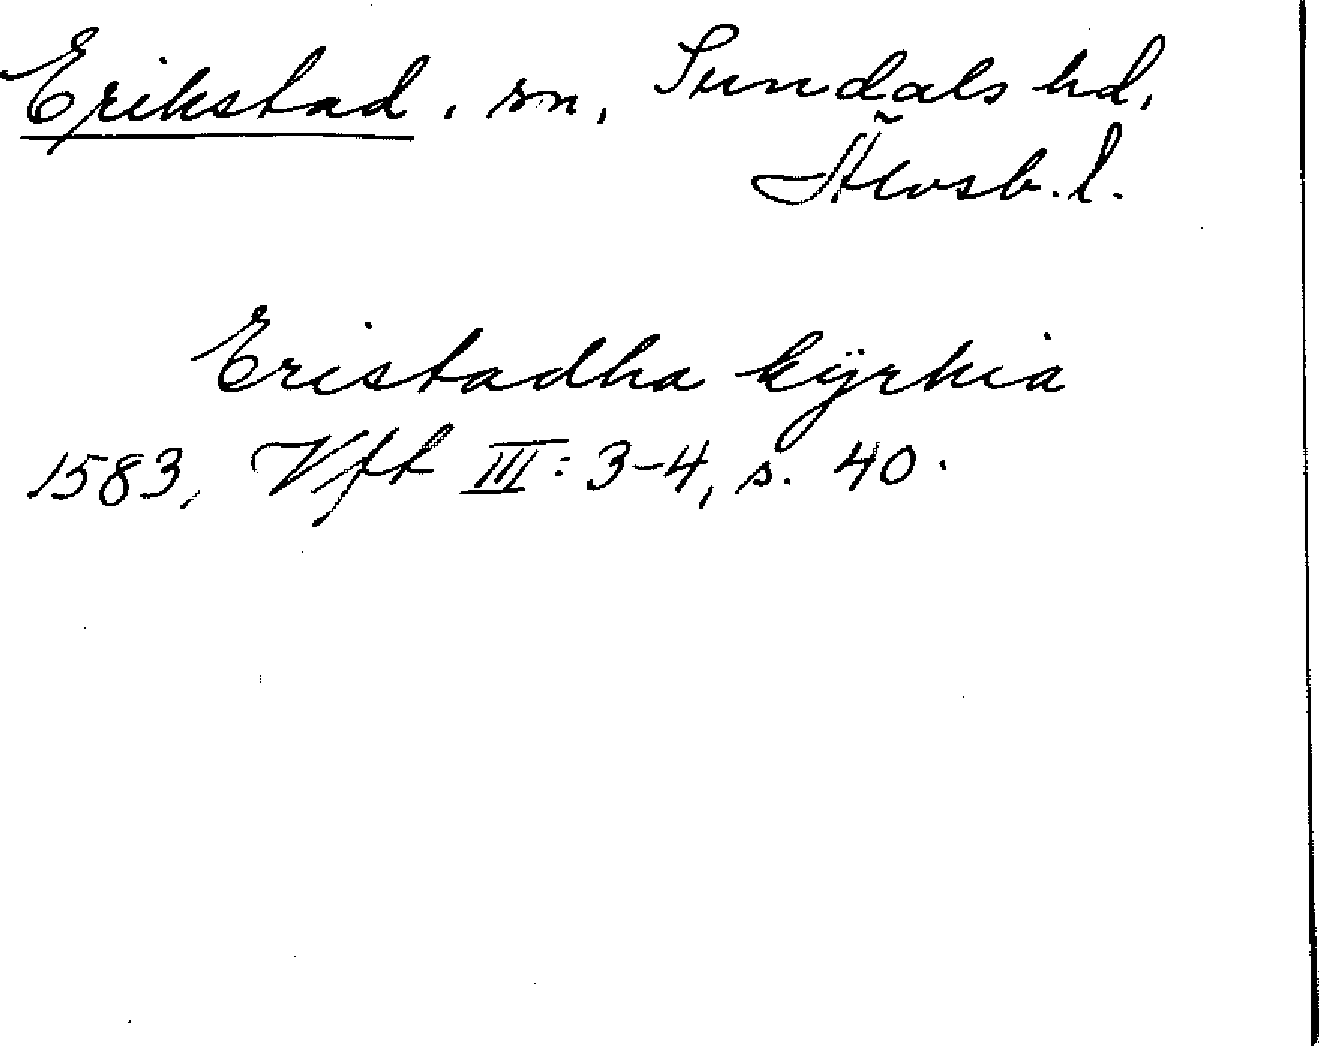 Erikstad, sn, Sundals hd,
Älvsb. l.
Eristadha kÿrkia
1583, Vft III: 3-4, s. 40.